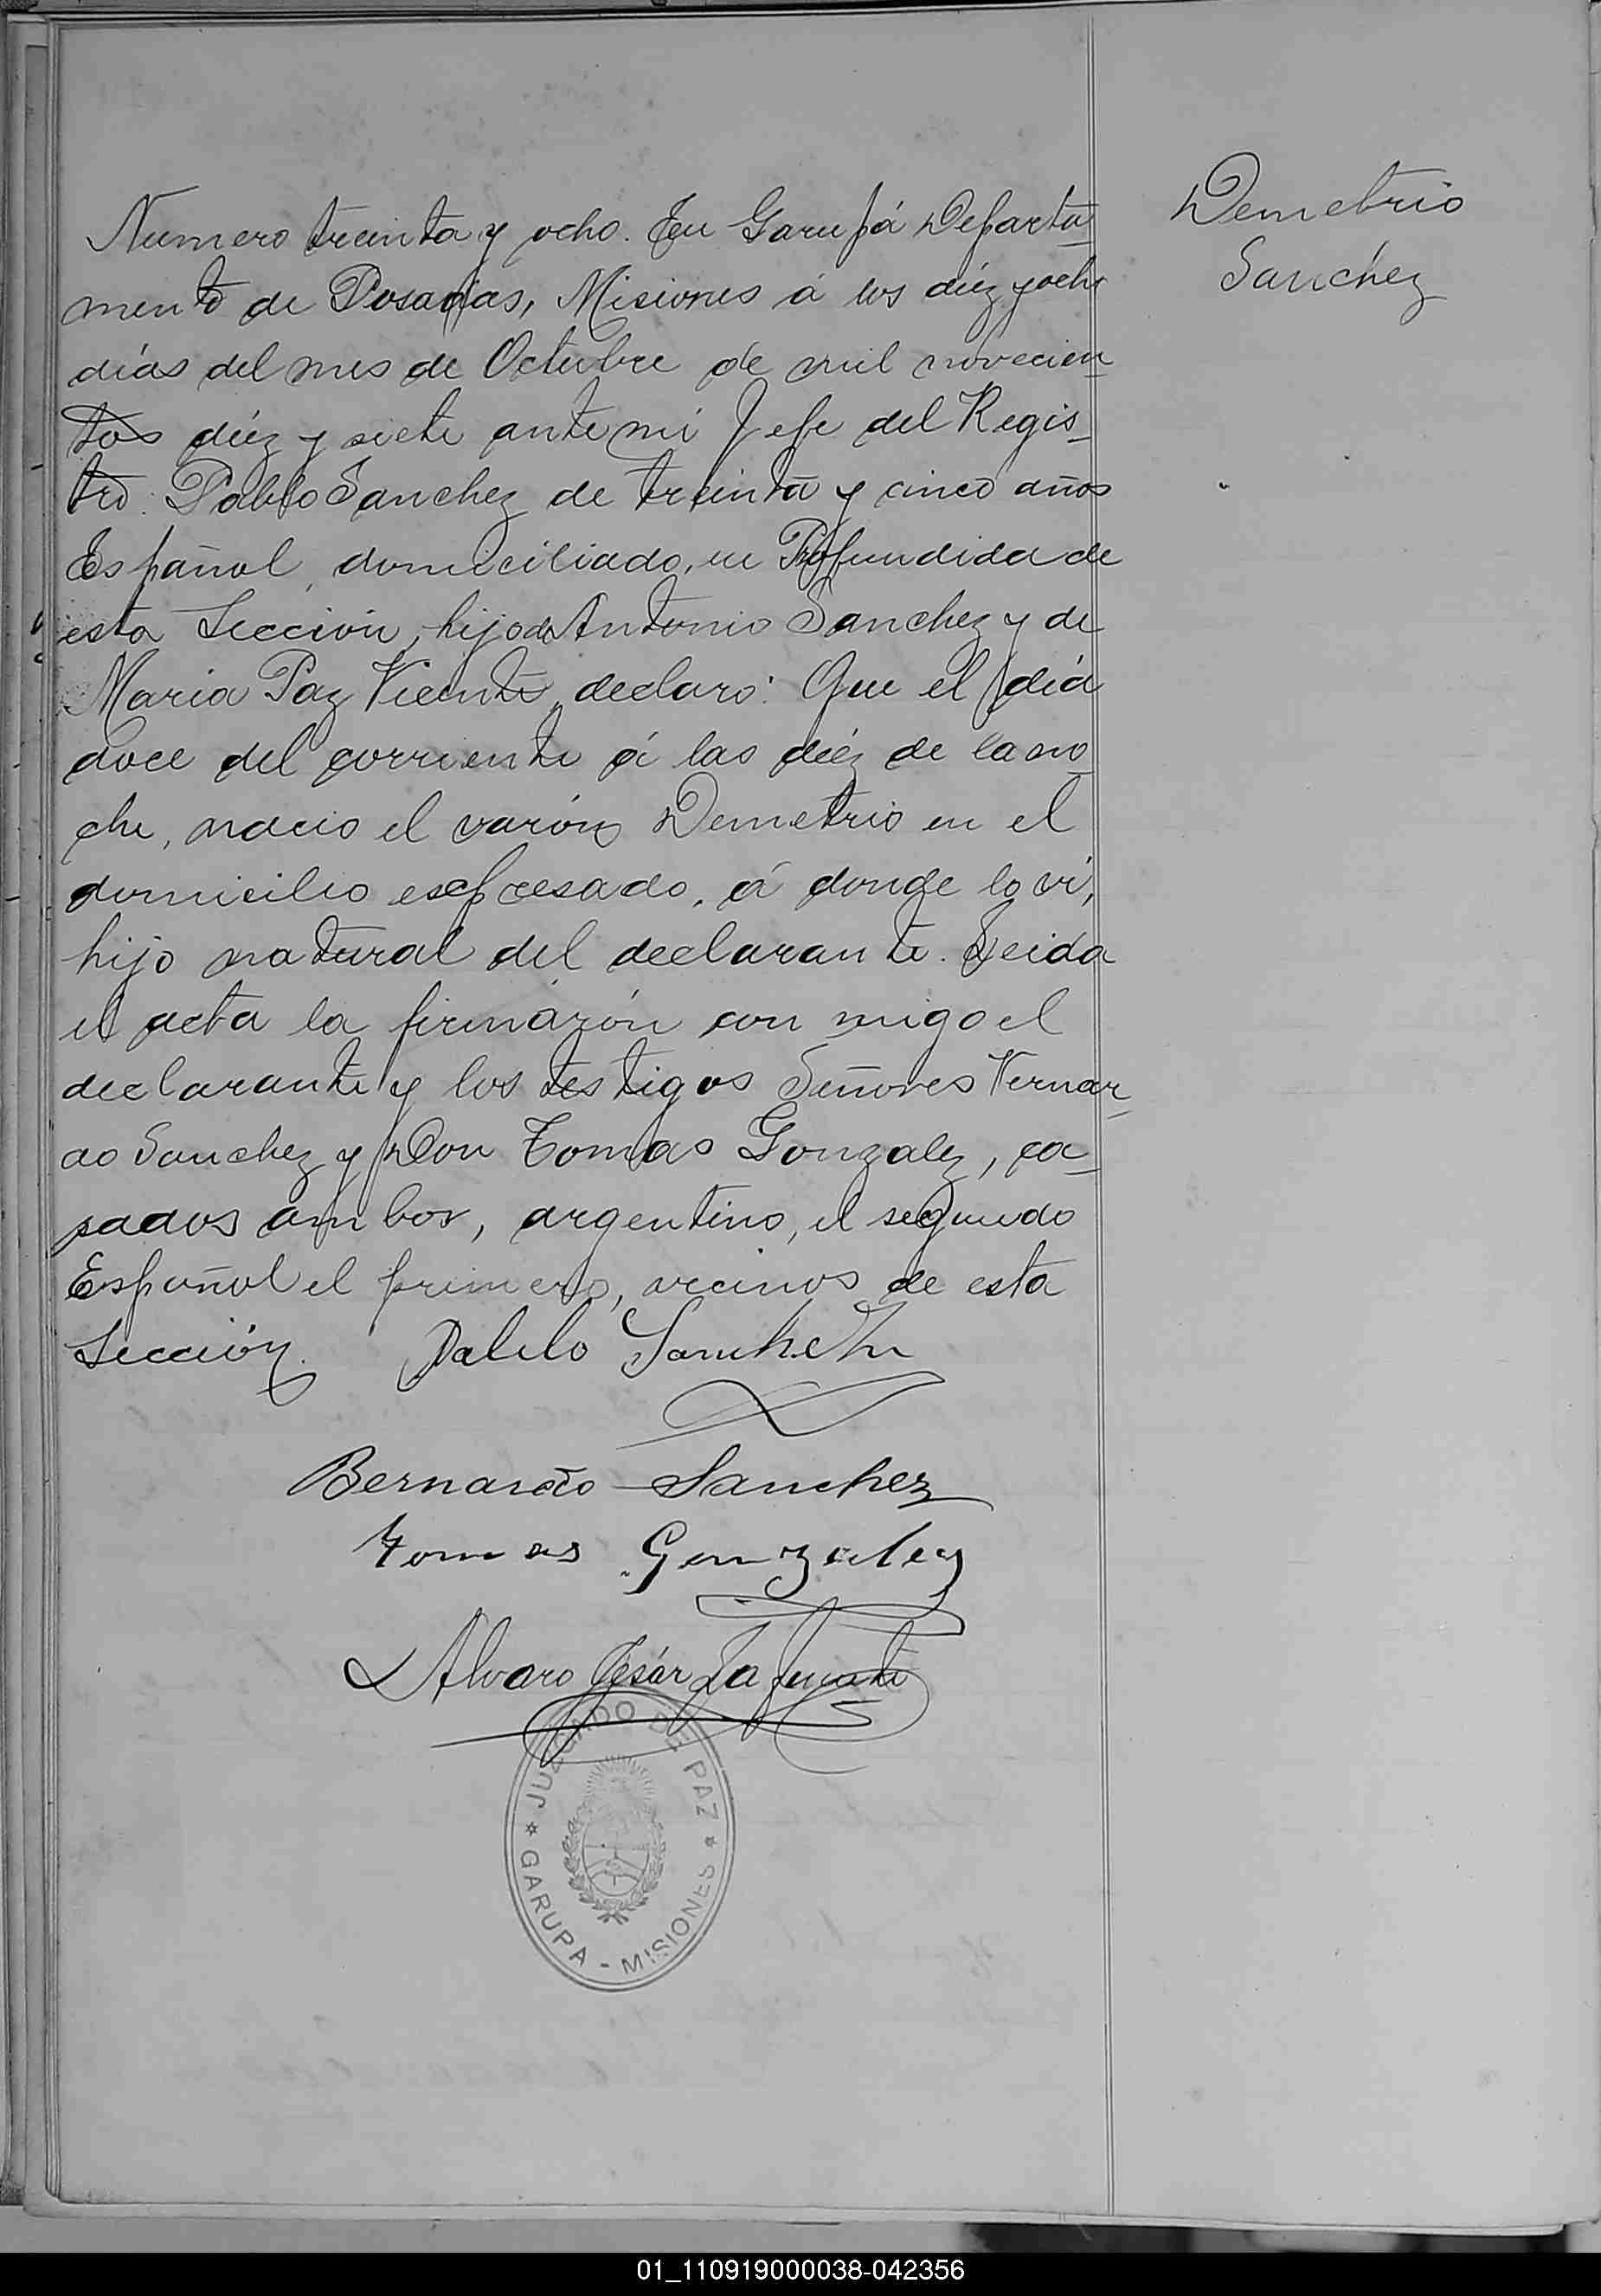 Demetrio
Sanchez
Numero treinta y ocho. En Garupá Departa-
mento de Posadas, Misiones á los diéz y ocho
días del mes de Octubre de mil novecien-
tos diéz y siete ante mi Jefe del Regis-
tro: Pablo Sanchez de treinta y cinco años
Español, domiciliado, en Profundida de
esta Sección, hijo de Antonio Sanchez y de
Maria Paz Vicente, declaro: Que el día
doce del corriente á las diéz de la no-
che, nacio el varón Demetrio en el
domicilio esepresado, á donde lo ví,
hijo natural del declarante. Leida
el acta la firmarón con migo el
declarante y los testigos Señores Vernar-
do Sanchez y Don Tomas Gonzalez, ca-
sados ambos, argentino, el segundo
Español el primero, vecinos de esta
Sección. Pablo Sanchez
Bernardo Sanchez
Tomas Gonzalez
Alvaro César Lafuente
JUZGADO DE PAZ
* GARUPA - MISIONES *
01_110919000038-042356